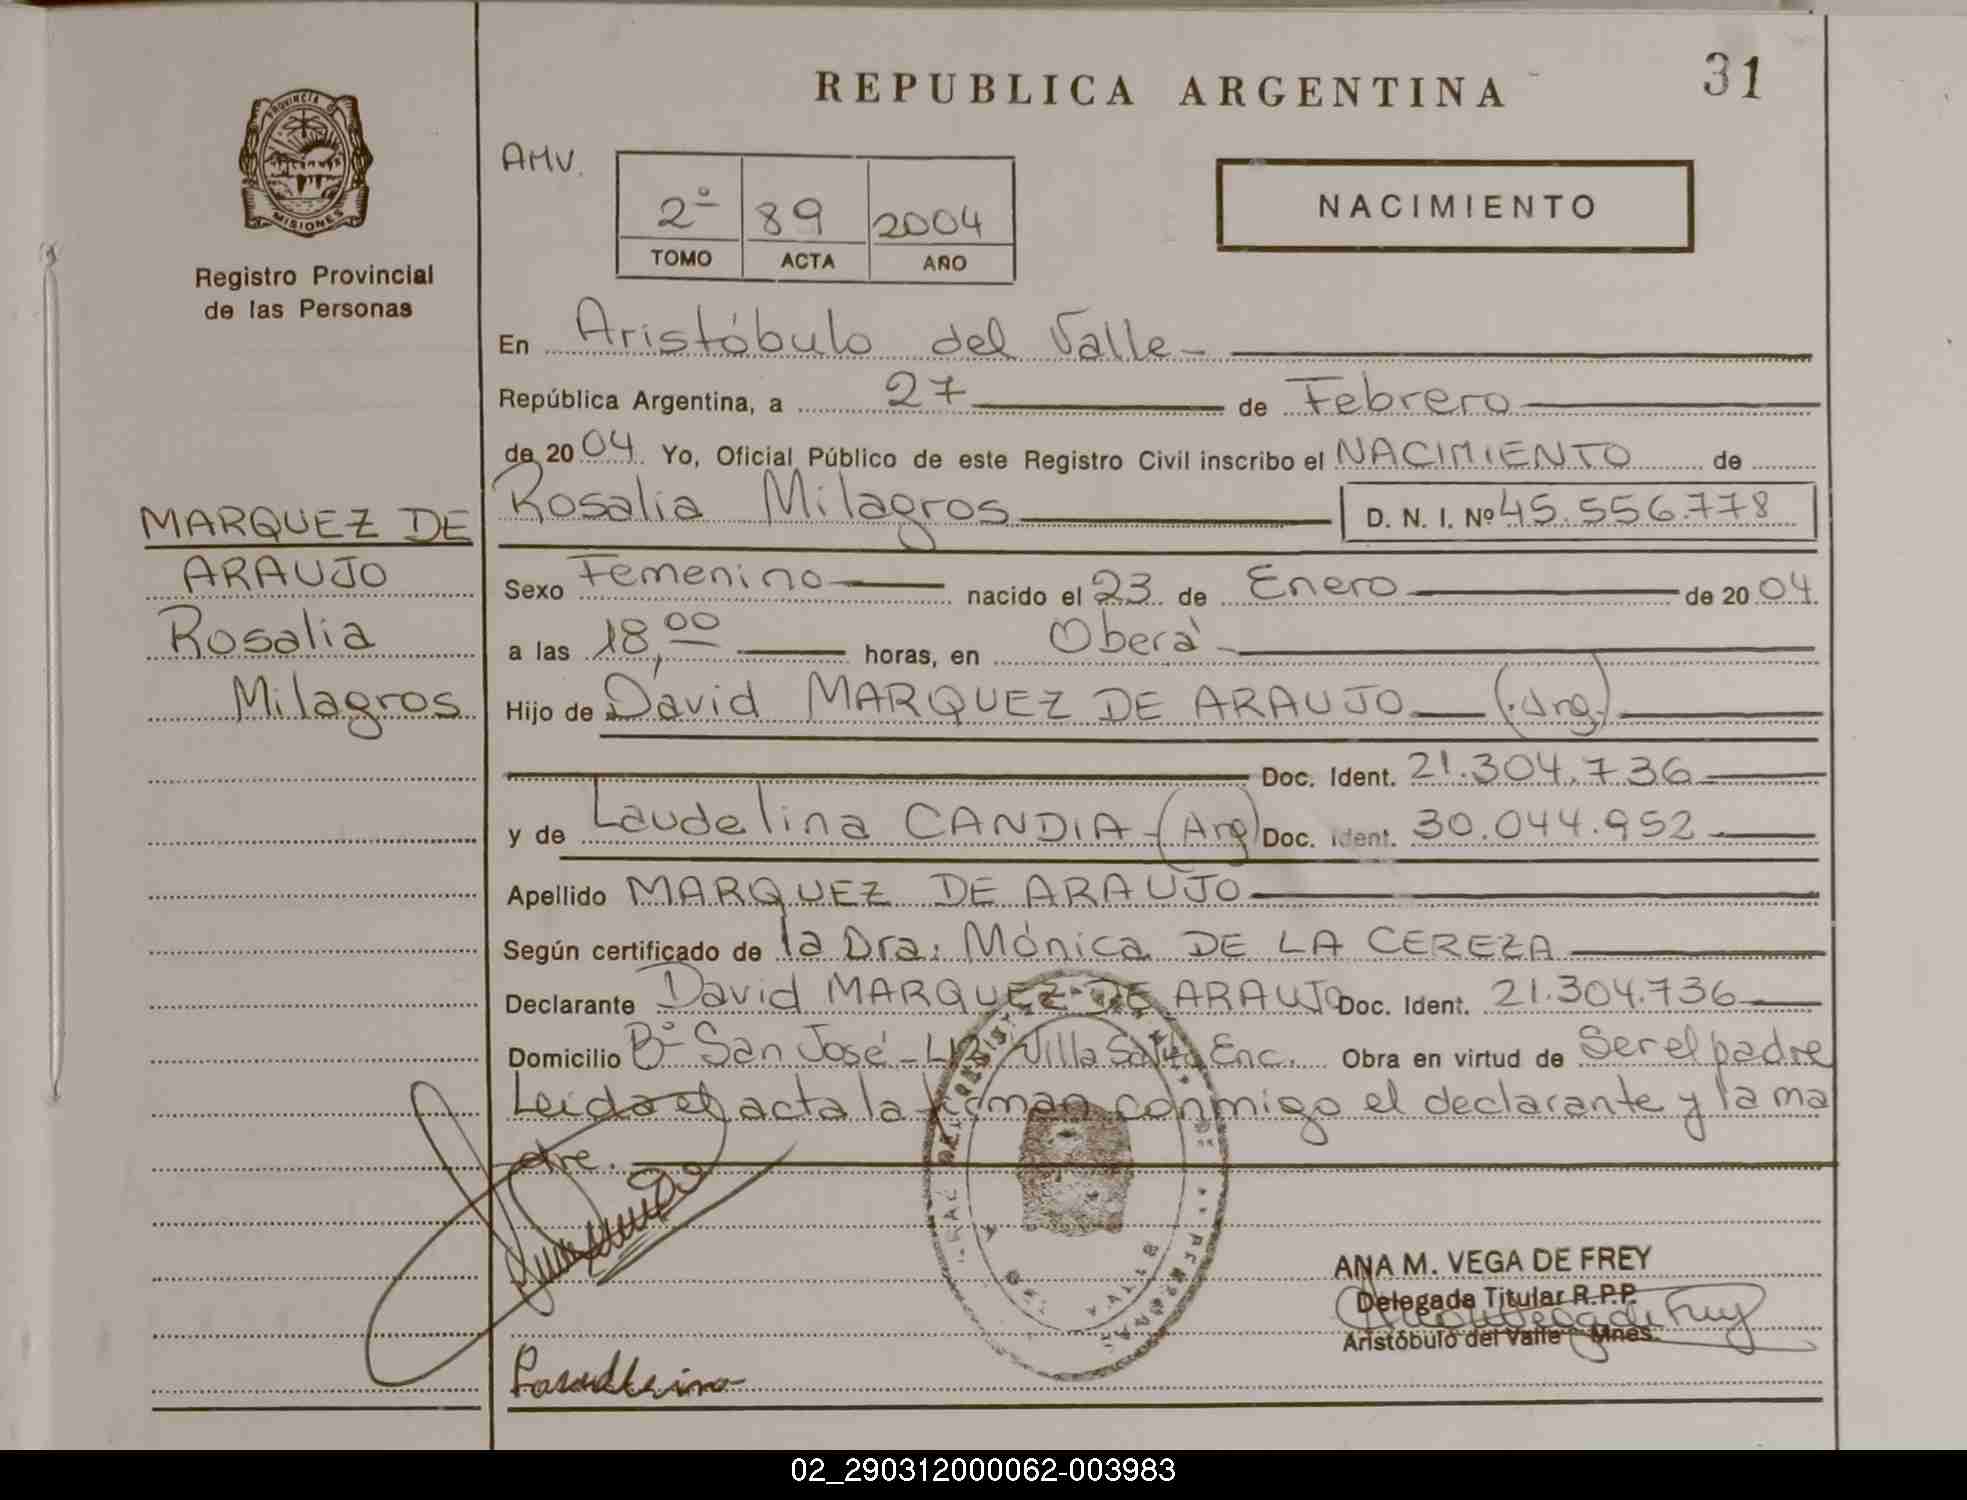 REPUBLICA ARGENTINA
31
PROVINCIA DE
MISIONES
Registro Provincial
de las Personas
AMV.
2º 89 2004
TOMO ACTA AÑO
NACIMIENTO
En Aristóbulo del Valle
República Argentina, a 27 de Febrero
de 2004 Yo, Oficial Público de este Registro Civil inscribo el NACIMIENTO de
Rosalia Milagros D. N. I. Nº 45.556.778
MARQUEZ DE
ARAUJO
Rosalia
Milagros
Sexo Femenino nacido el 23 de Enero de 2004
a las 18,00 horas, en Oberá
Hijo de David MARQUEZ DE ARAUJO (Arg.)
Doc. Ident. 21.304.736
y de Laudelina CANDIA (Arg) Doc. Ident. 30.044.952
Apellido MARQUEZ DE ARAUJO
Según certificado de la Dra. Mónica DE LA CEREZA
Declarante David MARQUEZ DE ARAUJO Doc. Ident. 21.304.736
Domicilio Bº San José - Villa Salto Enc. Obra en virtud de Ser el padre
Leída el acta la firman conmigo el declarante y la ma
dre.
ANA M. VEGA DE FREY
Delegada Titular R.P.P.
Aristóbulo del Valle - Mnes.
02_290312000062-003983